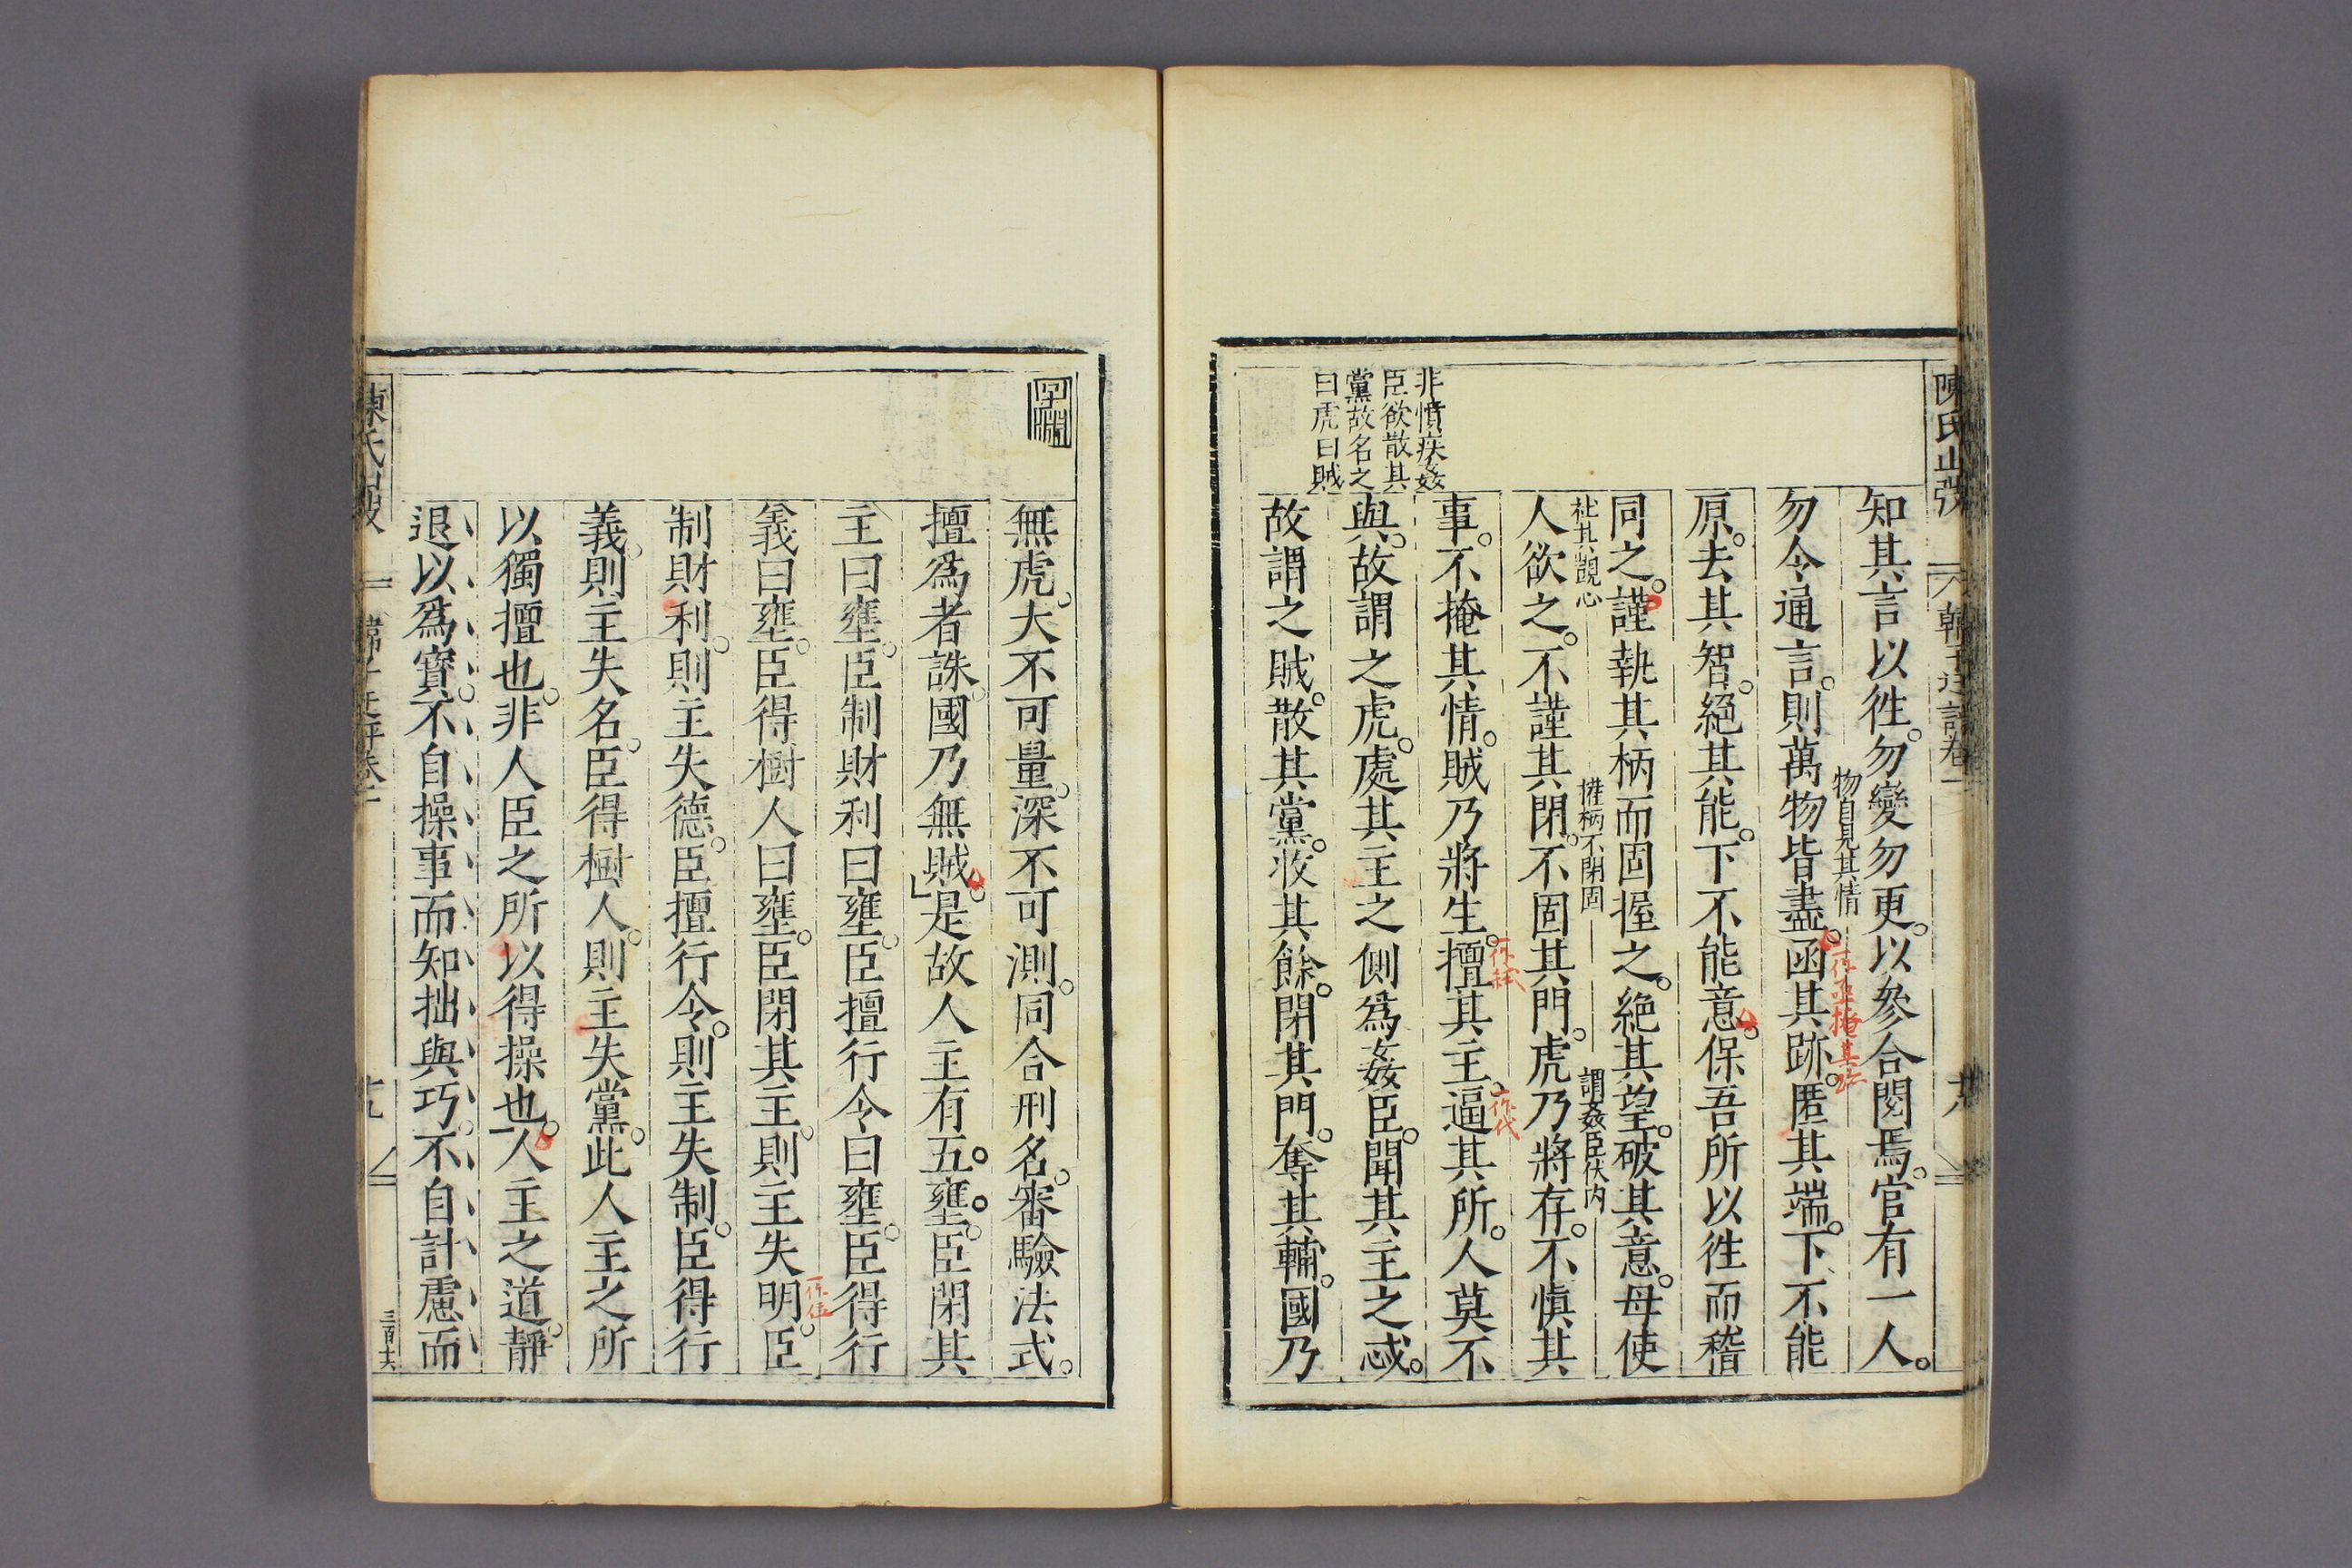 陳氏正
韓子迂評卷一
十八
知其言以徃。勿變勿更。以參合閱焉。官有一人。
物自見其情
勿令通言。則萬物皆盡。函其跡。匿其端。下不能
一作函掩其跡
原。去其智。絕其能。下不能意。保吾所以徃而稽
同之。謹執其柄而固握之。絕其望。破其意。毋使
杜其覬心
權柄不閉固
謂姦臣伏内
人欲之。不謹其閉。不固其門。虎乃將存。不慎其
事。不掩其情。賊乃將生。擅其主。逼其所。人莫不
一作弑
一作代
非憤疾姦
臣欲散其
黨故名之
曰虎曰賊
與。故謂之虎。處其主之側爲姦臣。聞其主之忒。
故謂之賊。散其黨。收其餘。閉其門。奪其輔。國乃
無虎。大不可量。深不可測。同合刑名。審驗法式。
擅爲者誅。國乃無賊。是故人主有五壅。臣閉其
主曰壅。臣制財利曰壅。臣擅行令曰壅。臣得行
義曰壅。臣得樹人曰壅。臣閉其主。則主失明。臣
一作位
制財利。則主失德。臣擅行令。則主失制。臣得行
義。則主失名。臣得樹人。則主失黨。此人主之所
以獨擅也。非人臣之所以得操也。人主之道。靜
退以爲寶。不自操事而知拙與巧。不自計慮而
陳氏
韓子迂評卷一
十九
三百十六